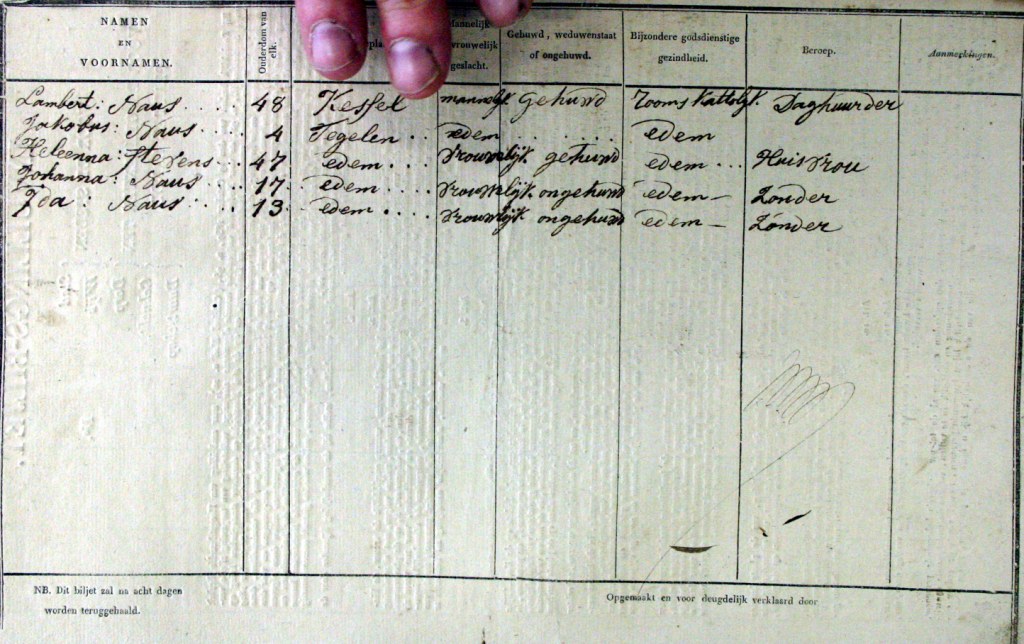 NAMEN EN VOORNAMEN. Ouderdom van elk. Mannelijk vrouwelijk geslacht. Gehuwd, weduwenstaat of ongehuwd. Bijzondere godsdienstige gezindheid. Beroep. Aanmerkingen.
Lambert: Naus 48 Kessel mannelijk gehuwd Rooms Kattolyk Daghuurder
Jakobus: Naus 4 Tegelen edem edem
Heleenna: Stevens 47 edem vrouwelijk gehuwd edem Huisvrou
Johanna: Naus 17 edem vrouwelijk ongehuwd edem Zonder
Naus 13 edem vrouwlijk ongehuwd edem Zonder
NB. Dit biljet zal na acht dagen
worden teruggehaald.
Opgemaakt en voor deugdelijk verklaard door